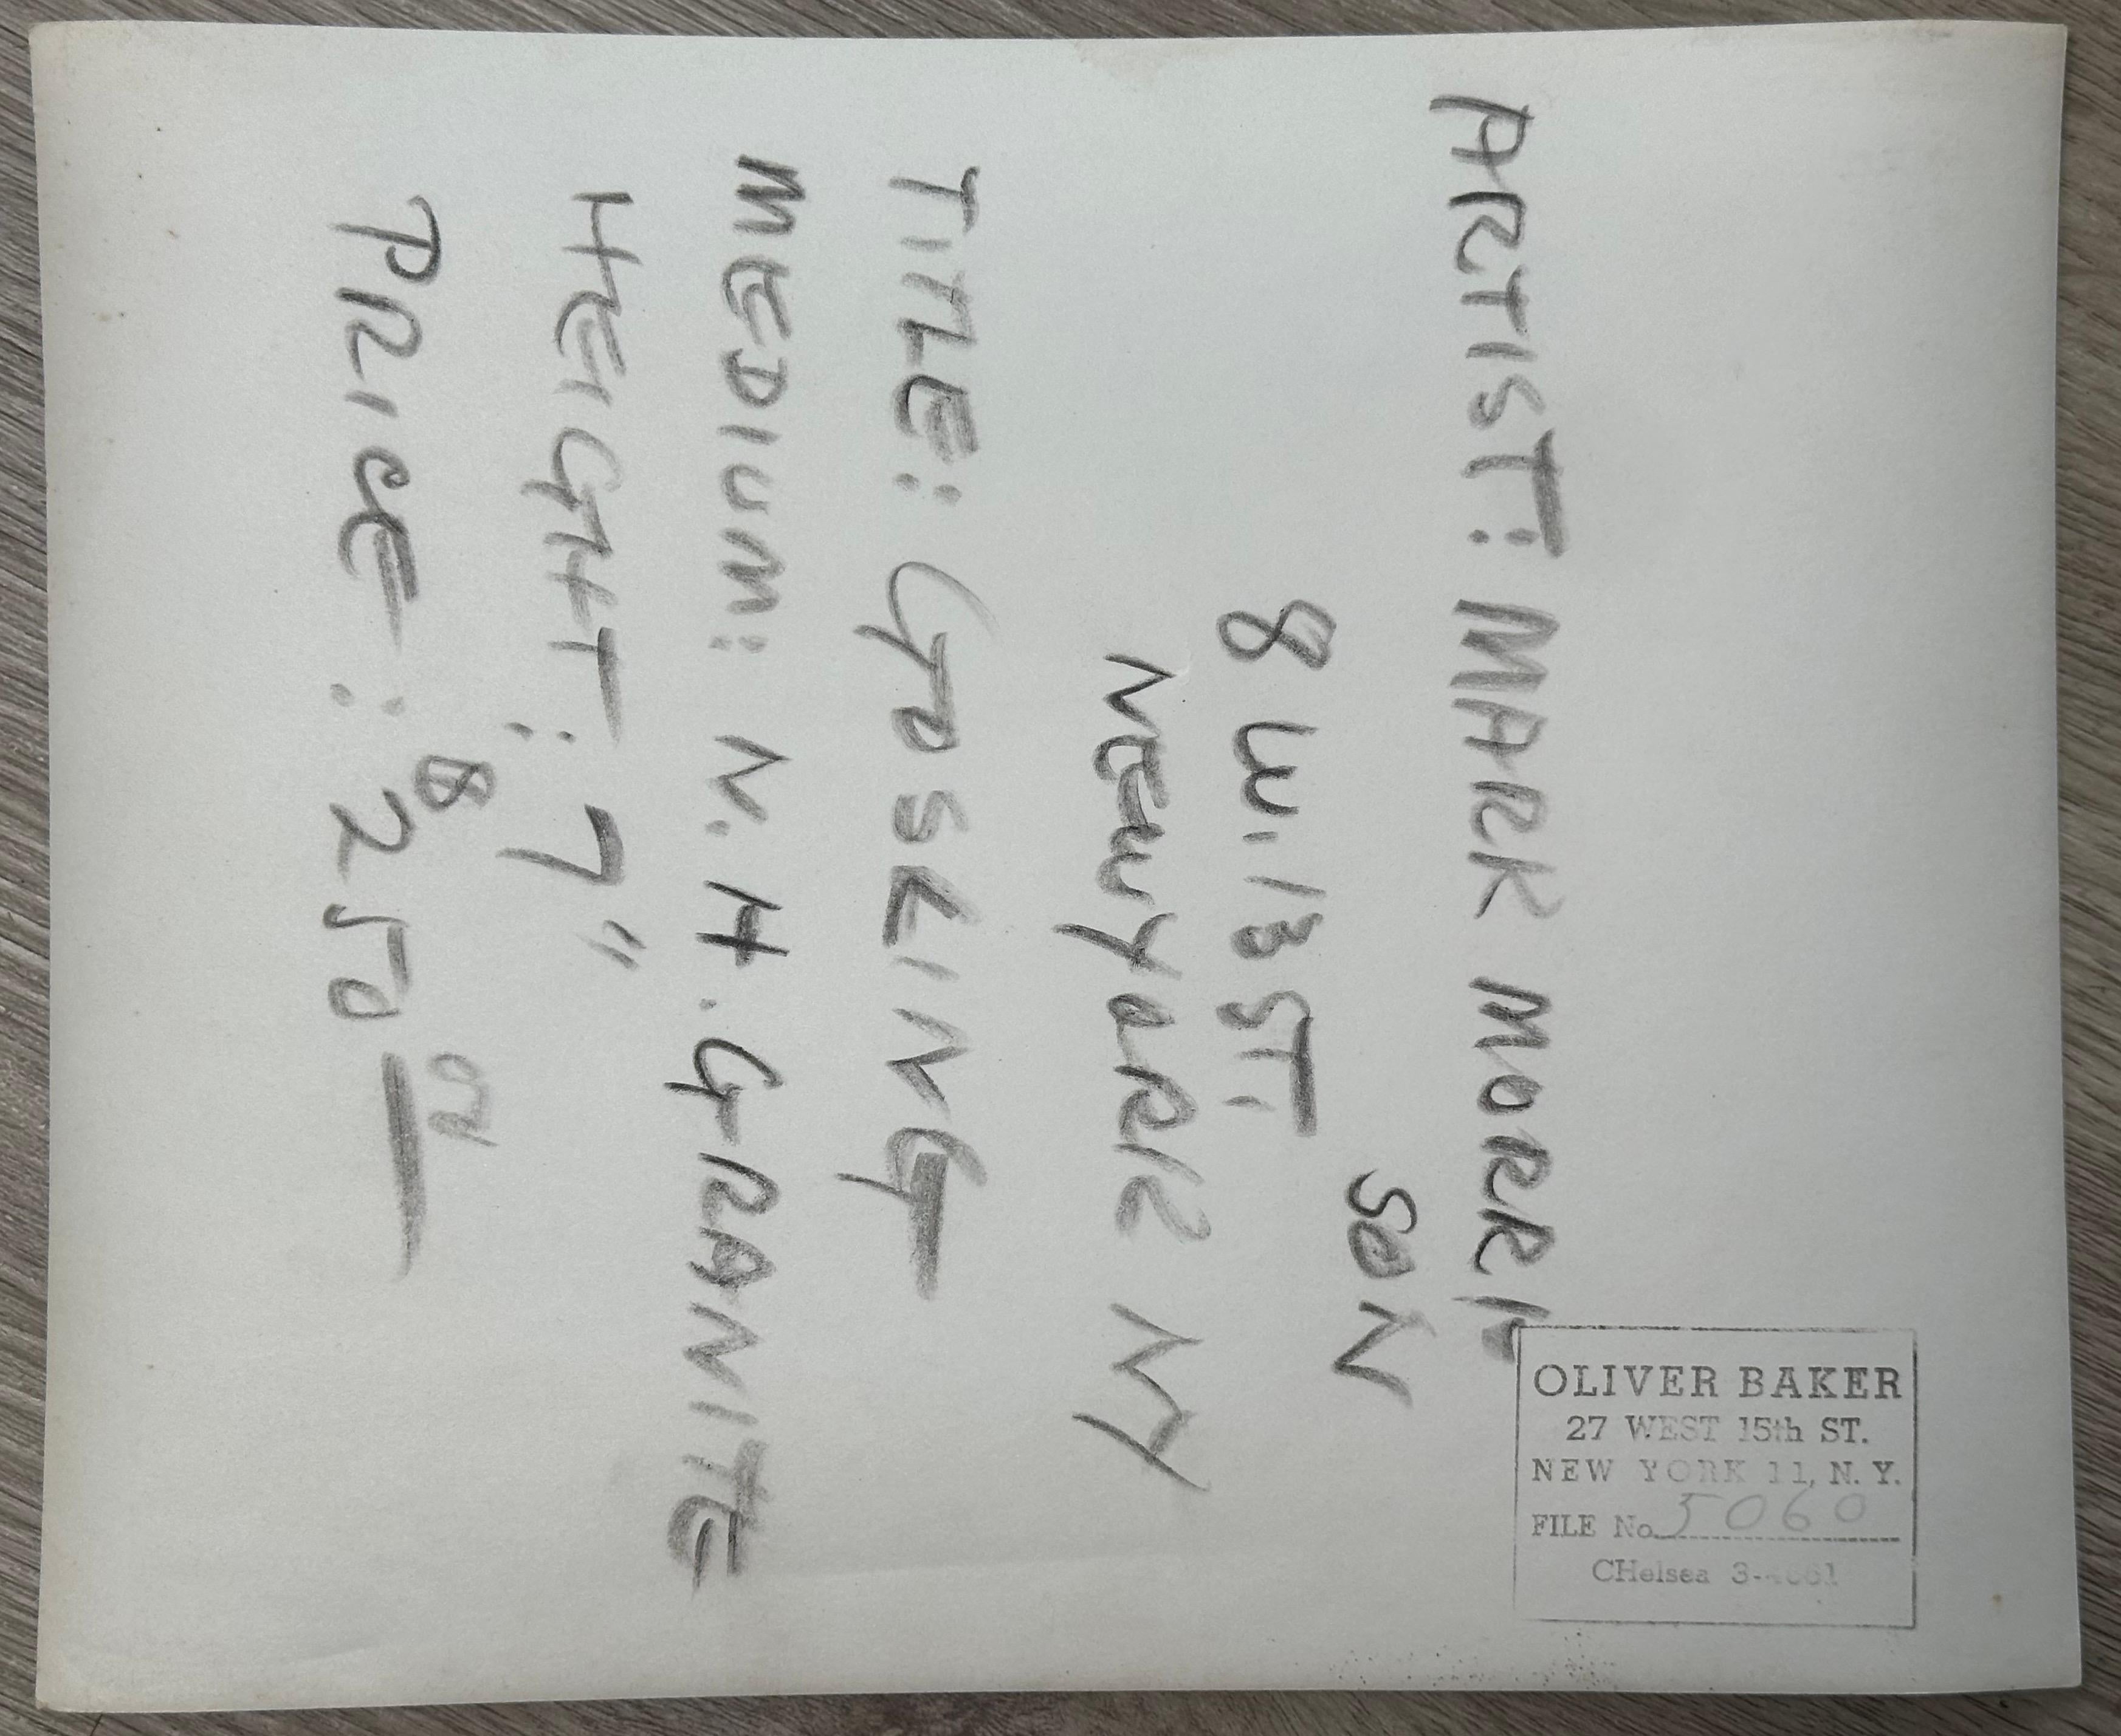 ARTIST: MARK MORRI
SON
8 W. 13 ST.
NEW YORK NY
TITLE: GOSLING
MEDIUM: N.H. GRANITE
HEIGHT: 7"
PRICE: $250
OLIVER BAKER
27 WEST 15th ST.
NEW YORK 11, N. Y.
FILE No. 5060
CHelsea